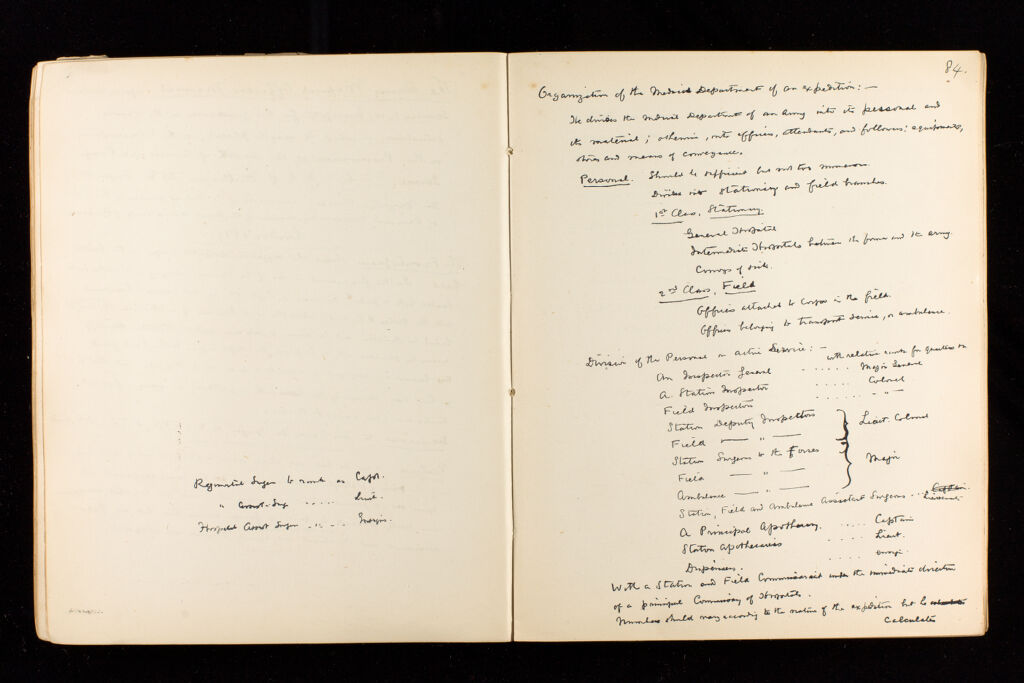 Regimental Surgn to rank as Capt.
" Assist-Surg ..... Lieut.
Hospital Assist Surgn ..... Ensign.
84.
Organization of the Medical Department of an expedition:—
He divides the Medical Department of an Army into its personal and
its material; otherwise, into officers, attendants, and followers: equipments,
stores and means of conveyance.
Personal. Should be sufficient but not too numerous.
Divides into Stationary and field branches.
1st Class, Stationary
General Hospital
Intermediate Hospitals between the former and the army.
Convoys of sick.
2nd Class, Field
Officers attached to Corps in the field.
Officers belonging to transport service, or ambulance.
Division of the Personal on active Service:— with relative rank for quarters &c
An Inspector General ...... Major General
A Station Inspector ..... Colonel
Field Inspector ...... " "
Station Deputy Inspectors
Field — " — Lieut. Colonel
Station Surgeons to the Forces
Field — " — Major
Ambulance — " —
Station, Field and Ambulance Assistant Surgeons ... Captain Lieutenants
A Principal Apothecary ..... Captain
Station Apothecaries ..... Lieut.
Dispensers. ..... Ensign.
With a Station and Field Commissariat under the immediate direction
of a principal Commissary of Hospitals.
Numbers should vary according to the nature of the expedition but he
calculates